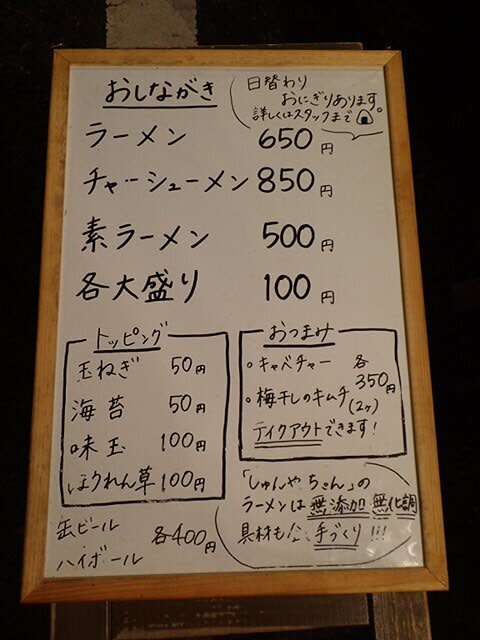 おしながき
日替わり
おにぎりあります。
詳しくはスタッフまで
ラーメン 650円
チャーシューメン 850円
素ラーメン 500円
各大盛り 100円
トッピング
玉ねぎ 50円
海苔 50円
味玉 100円
ほうれん草 100円
おつまみ
・キャベチャー 各
350円
・梅干しのキムチ
(2ヶ)
テイクアウトできます!
缶ビール
ハイボール 各400円
「しゅんやちゃん」の
ラーメンは無添加 無化調
具材も全て手づくり!!!